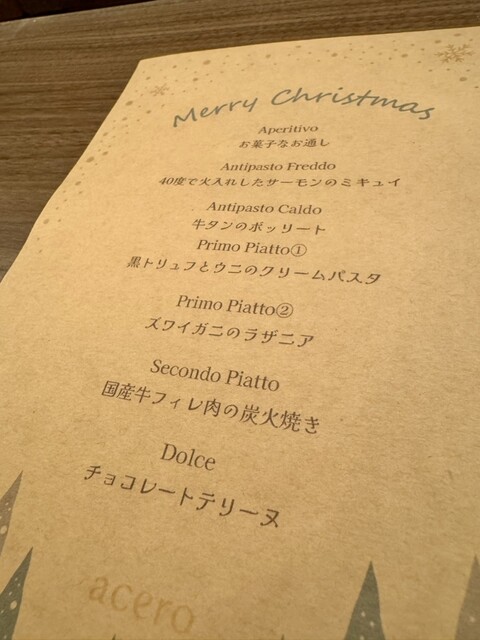 Merry Christmas
Aperitivo
お菓子なお通し
Antipasto Freddo
40度で火入れしたサーモンのミキュイ
Antipasto Caldo
牛タンのボッリート
Primo Piatto①
黒トリュフとウニのクリームパスタ
Primo Piatto②
ズワイガニのラザニア
Secondo Piatto
国産牛フィレ肉の炭火焼き
Dolce
チョコレートテリーヌ
acero